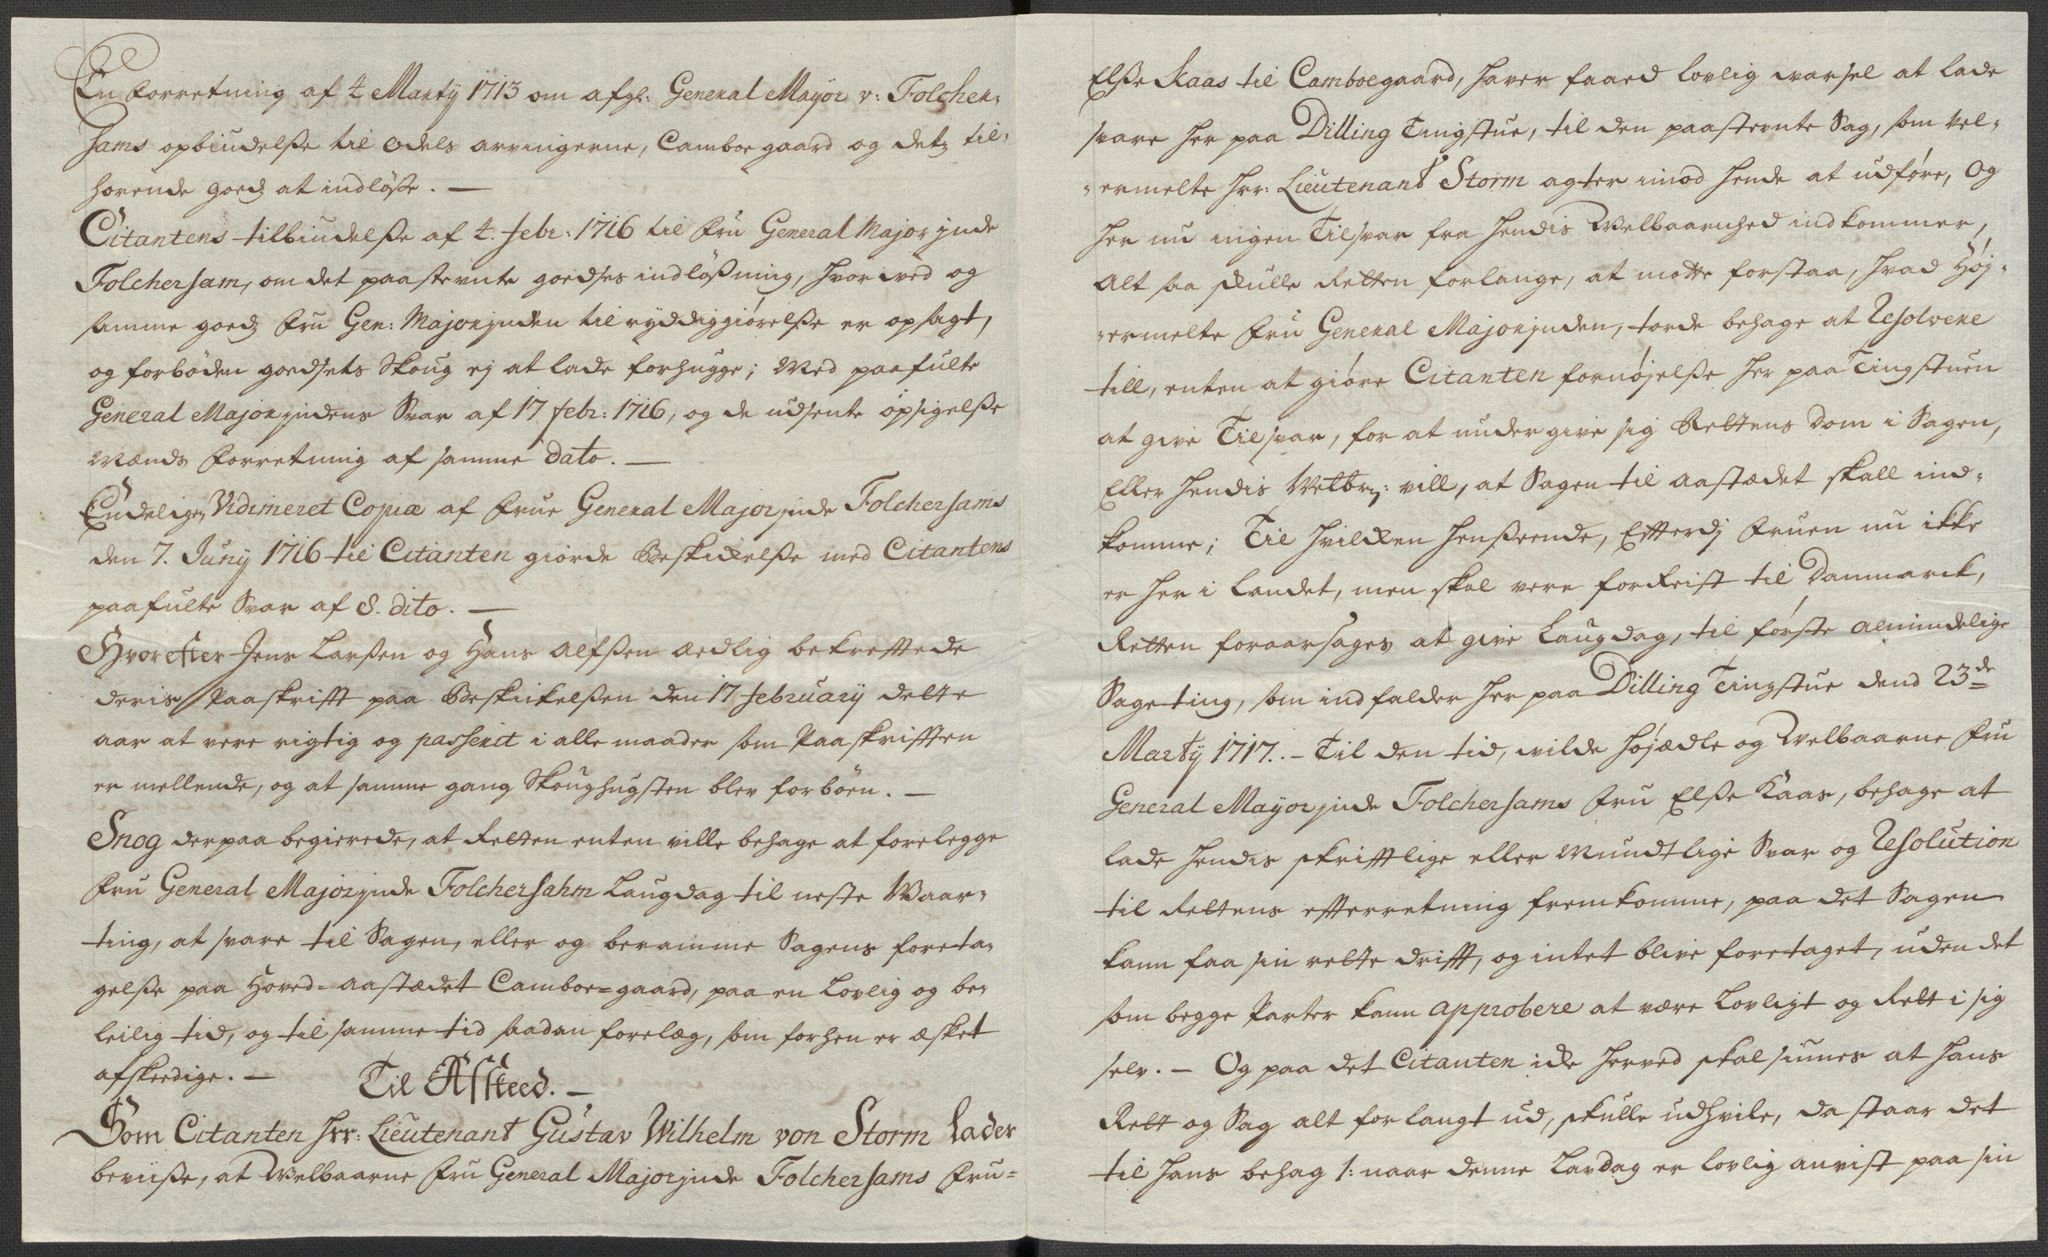 En Forretning af 4 Marty 1713 om afgl: General Mayor v: Folcher-
sams opbiudelße til Odels arvingerne, Camboegaard og detz til-
hørende goedz at indlöße. —
Citantens tilbiudelße af 4. febr: 1716 til Fru General Majorjnde
Folchersam, om det paastevnte goedses indlößning, hvorved og
samme goedz Fru Gen: Majorjnden til ryddiggiørelße er opsagt,
og forböden goedsets Skoug ej at lade forhugge; Med paafulte
General Majorjndens Svar af 17 febr: 1716, og de udsente opsigelße
Mænds Forretning af samme dato. —
Endelige Vidimeret Copiæ af Frue General Majorjnde Folchersams
den 7. Juny 1716 til Citanten giorde Beskikelße med Citantens
paafulte Svar af 8. dito. —
Hvorefter Jens Larßen og Hans Alfßen ædlig bekreftede
deris Paaskrifft paa Beskikelßen den 17 february dette
aar at vere rigtig og passerit i alle maader som Paaskrifften
er mellende, og at samme gang Skoughugsten blev forböen. —
Snog derpaa begierede, at Retten enten ville behage at forelegge
Fru General Majorjnde Folchersahm Laugdag til neste Waar-
ting, at svare til Sagen, eller og beramme Sagens foreta-
gelße paa Hoved-aastædet Camboe=gaard, paa en Lovlig og be-
leilig tid, og til samme tid saadan forelæg, som forhen er æsket
afskeedige. —
Til Afskeed. —
Som Citanten Hrr: Lieutenant Gustav Wilhelm von Storm lader
beviiße, at Welbaarne Fru General Majorjnde Folchersams Fru-
Elße Kaas til Camboegaard, haver faaed lovlig varsel at lade
svare her paa Dilling Tingstue, til den paastevnte Sag, som vel-
-ermelte Hrr: Lieutenant Storm agter imod hende at udføre, Og
her nu ingen Tilsvar fra hendis Welbaarnhed indkommer,
Alt saa skulle Retten forlange, at motte forstaa, hvad Høj-
-ermelte Fru General Majorjnden, torde behage at Resolvere
till, enten at giøre Citanten fornøjelße her paa Tingstuen
at give Tilsvar, for at undergive sig Rettens Dom i Sagen,
Eller hendis Velbrn: vill, at Sagen til aastædet skall ind-
komme; Til hvilken henßeende, Efterdj Fruen nu ikke
er her i Landet, men skal vere forReist til Danmarck,
Retten foraarsages at give Laugdag, til første almindelige
Sageting, som indfalder her paa Dilling Tingstue dend 23de
Marty 1717. – Til den tid, vilde højædle og Welbaarne Fru
General Mayorjnde Folchersams Fru Elße Kaas, behage at
lade hendis skrifftlige eller Mundtlige Svar og Resolution
til Rettens effterretning fremkomme, paa det Sagen
kann faa sin rette drifft, og intet blive foretaget, uden det
som begge Parter kann approbere at være Lovligt og Rett i sig
selv. — Og paa det Citanten icke herved skal siunes at hans
Rett og Sag alt for langt ud, skulle udhvile, da staar det
til hans behag /: naar denne Lavdag er lovlig anvist paa sin